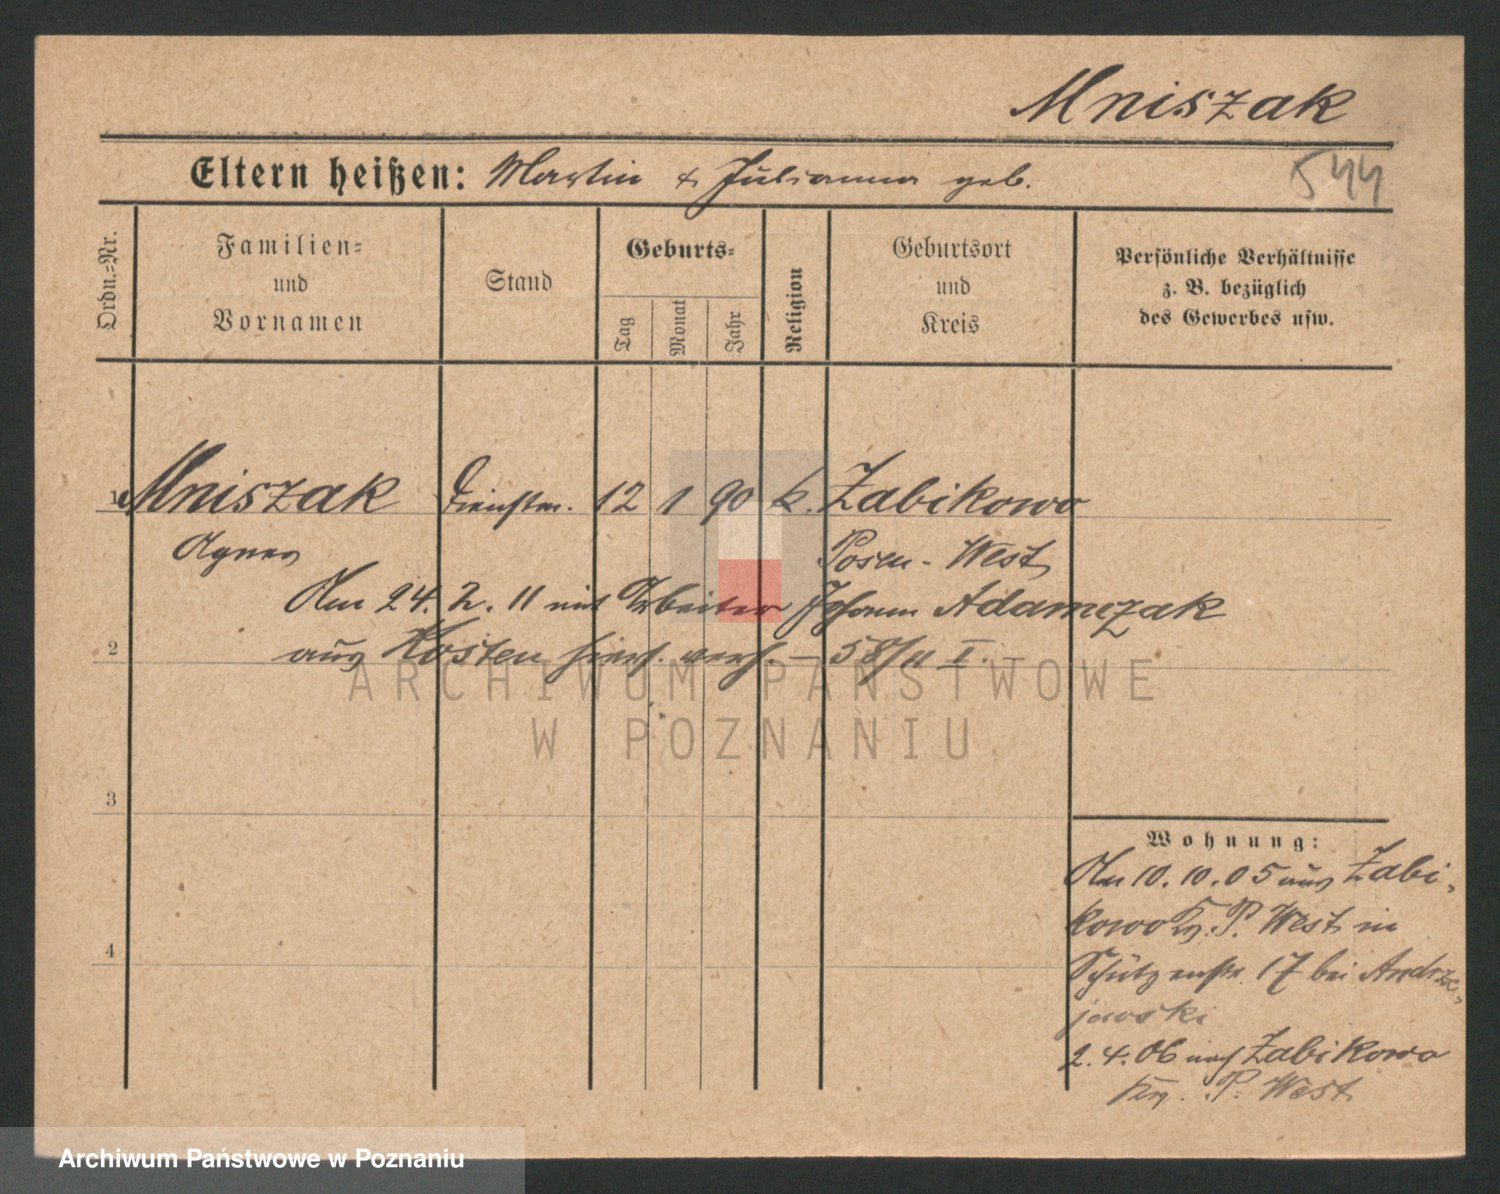 Mniszak
544
Eltern heißen: Martin & Julianna geb.
Ordn.=Nr.
Familien=
und
Vornamen
Stand
Geburts=
Tag
Monat
Jahr
Religion
Geburtsort
und
Kreis
Persönliche Verhältnisse
z. B. bezüglich
des Gewerbes usw.
1 Mniszak Dienstm. 12 1 90 k. Zabikowo
Agnes Posen-West
Am 24. 2. 11 mit Arbeiter Johann Adamczak
aus Kosten hier verh. – 58/11 I.
2
3
4
Wohnung:
Am 10.10.05 aus Zabi-
kowo Kr. P. West in
Schützenstr. 17 bei Andrze-
jewski
2.4.06 nach Zabikowo
Kr. P. West
ARCHIWUM PAŃSTWOWE
W POZNANIU
Archiwum Państwowe w Poznaniu